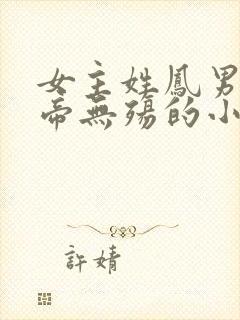 女主姓鳳男
帝無殤的小
許婧